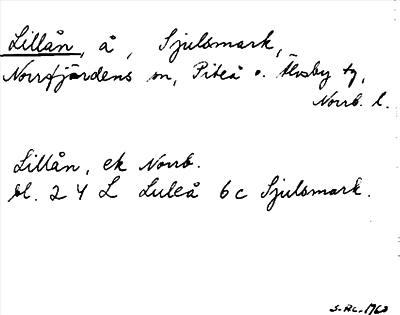 Lillån, å, Sjulsmark,
Norrfjärdens sn, Piteå o. Älvsby tg,
Norrb. l.
Lillån, ek Norrb.
bl. 24 L Luleå 6c Sjulsmark.